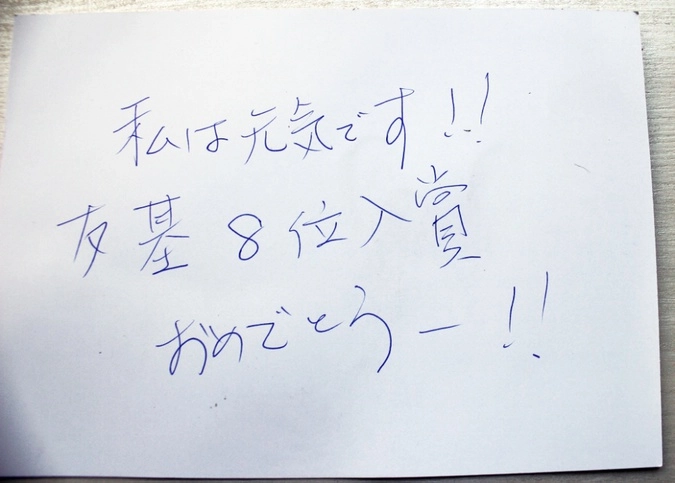 私は元気です!!
友基8位入賞
おめでとうー!!